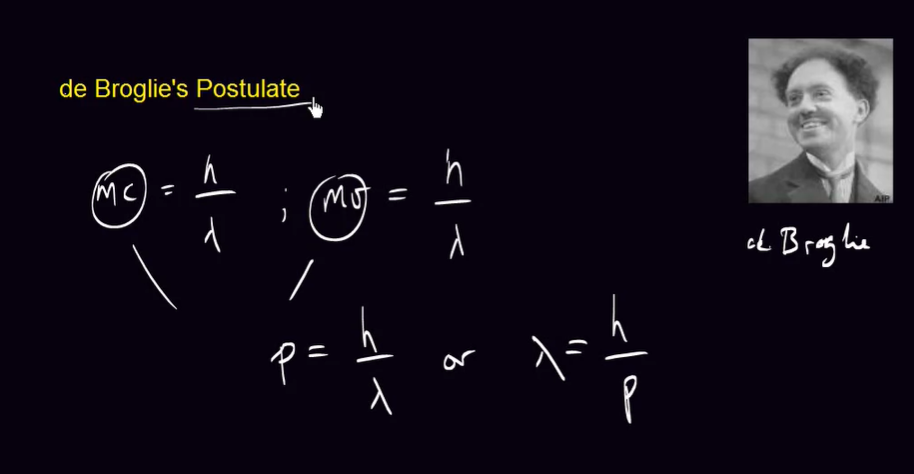 de Broglie's Postulate
mc = h/λ ; mv = h/λ
p = h/λ or λ = h/p
AIP
de Broglie